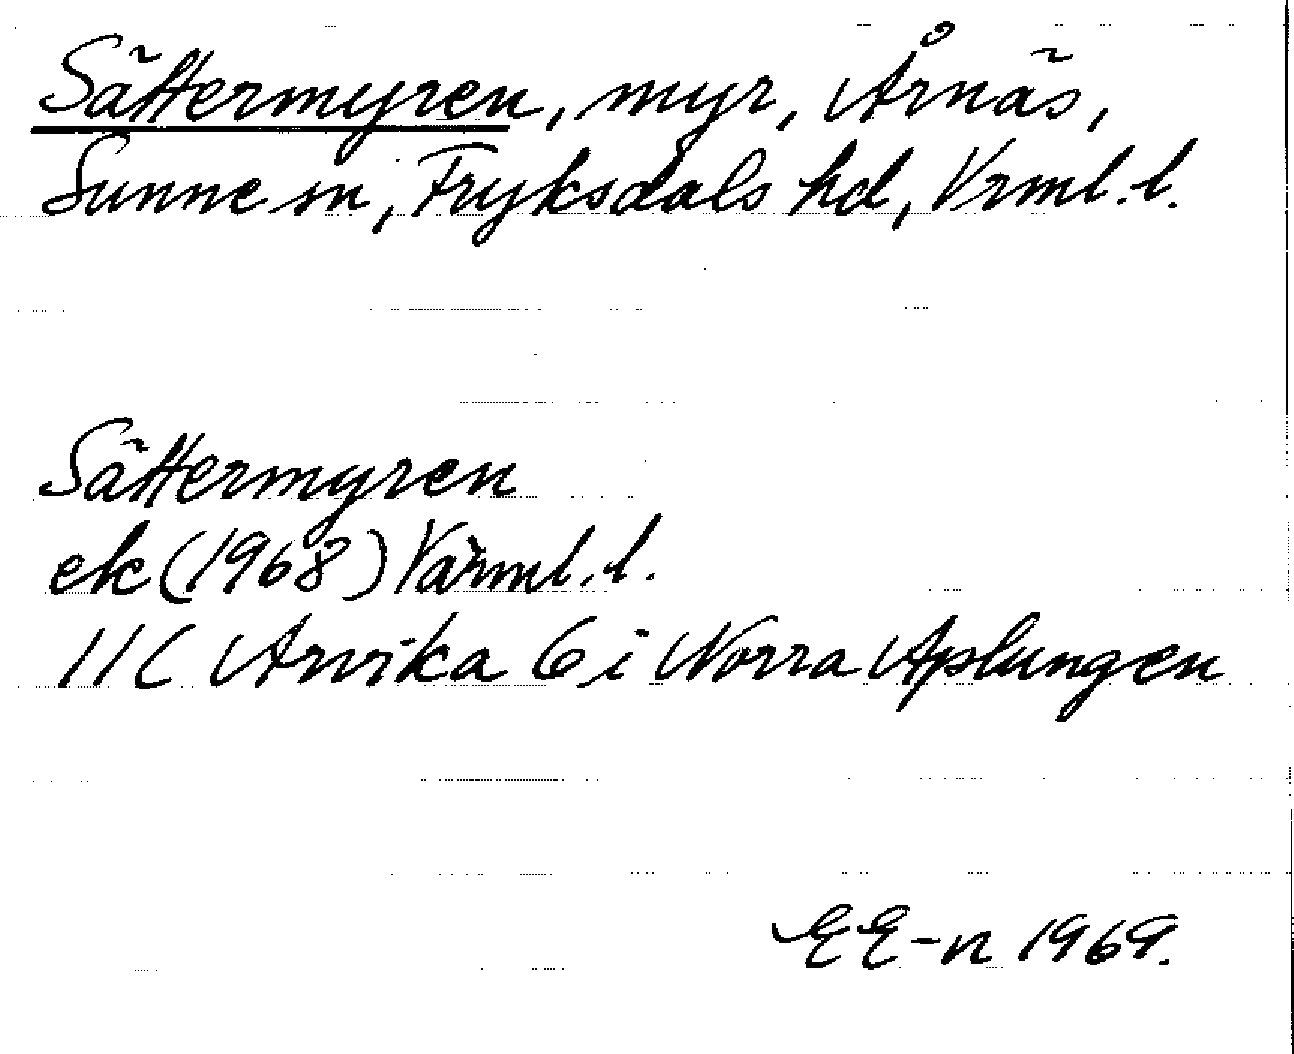 Sättermyren, myr, Årnäs,
Sunne sn, Fryksdals hd, Vrml. l.
Sättermyren
ek (1968) Värml. l.
11C Arvika 6i Norra Aplungen
EE-n 1969.